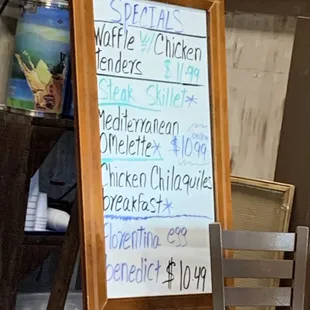 SPECIALS
Waffle w/ Chicken
Tenders $11.99
Steak Skillet*
Mediterranean
Omelette* $10.99
Chicken Chilaquiles
breakfast*
Florentina egg
benedict $10.49